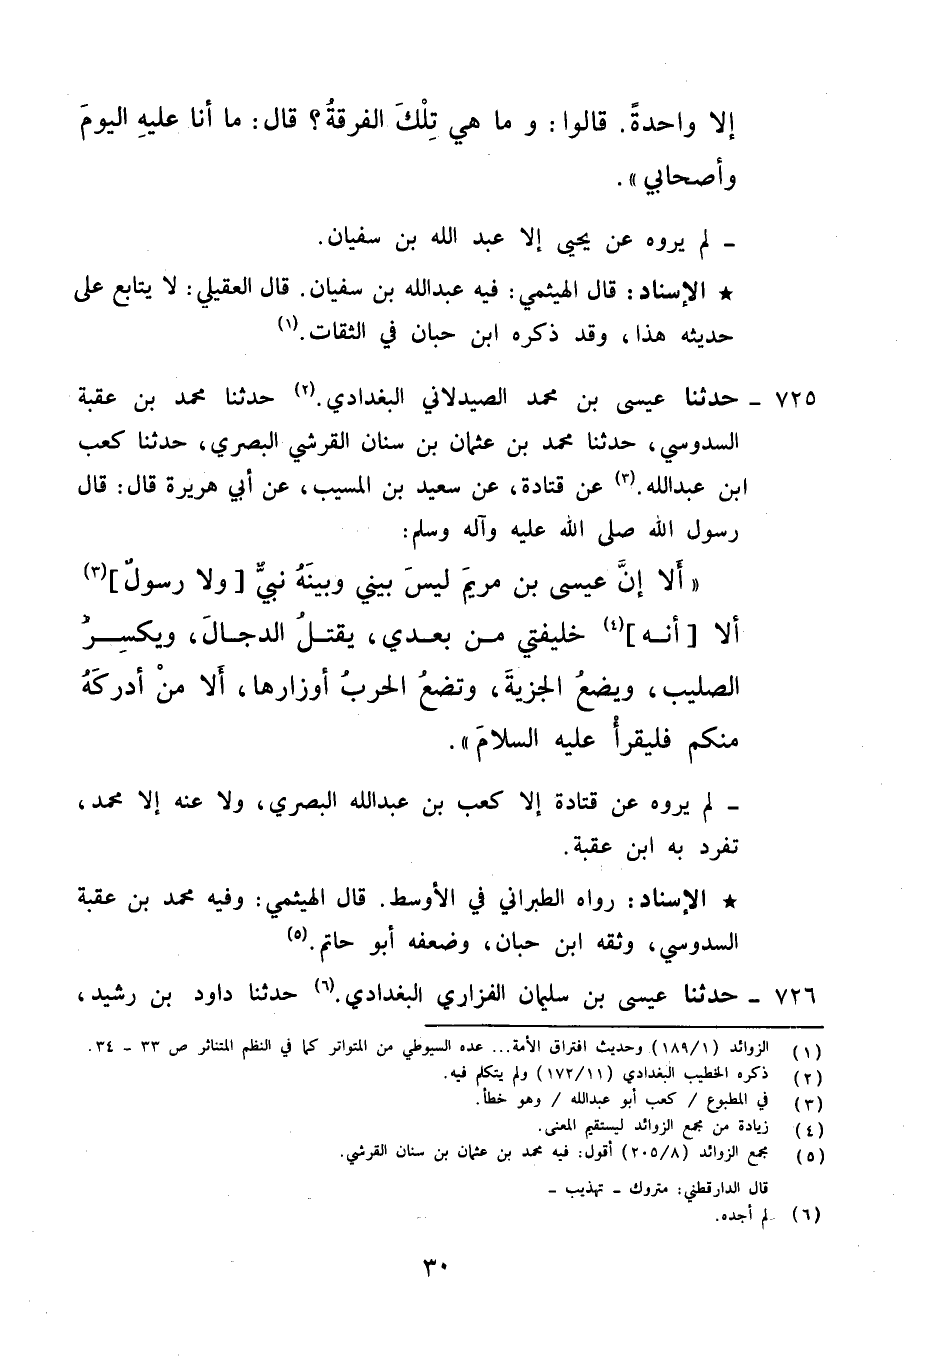 إلا واحدةً. قالوا: و ما هي تِلْكَ الفرقةُ؟ قال: ما أنا عليهِ اليومَ
وأصحابي».
ـ لم يروه عن يحيى إلا عبد الله بن سفيان.
★ الإسناد: قال الهيثمي: فيه عبدالله بن سفيان. قال العقيلي: لا يتابع على
حديثه هذا، وقد ذكره ابن حبان في الثقات.(١)
٧٢٥ ـ حدثنا عيسى بن محمد الصيدلاني البغدادي.(٢) حدثنا محمد بن عقبة
السدوسي، حدثنا محمد بن عثمان بن سنان القرشي البصري، حدثنا كعب
ابن عبدالله.(٣) عن قتادة، عن سعيد بن المسيب، عن أبي هريرة قال: قال
رسول الله صلى الله عليه وآله وسلم:
«ألا إنَّ عيسى بن مريمَ ليسَ بيني وبينَهُ نبيٌّ [ولا رسولٌ](٣)
ألا [أنـه](٤) خليفتي مـن بعـدي، يقتـلُ الدجـالَ، ويكسِـرُ
الصليب، ويضعُ الجزيةَ، وتضعُ الحربُ أوزارها، ألا منْ أدركَهُ
منكم فليقرأْ عليه السلامَ».
ـ لم يروه عن قتادة إلا كعب بن عبدالله البصري، ولا عنه إلا محمد،
تفرد به ابن عقبة.
★ الإسناد: رواه الطبراني في الأوسط. قال الهيثمي: وفيه محمد بن عقبة
السدوسي، وثقه ابن حبان، وضعفه أبو حاتم.(٥)
٧٢٦ ـ حدثنا عيسى بن سليمان الفزاري البغدادي.(٦) حدثنا داود بن رشيد،
(١) الزوائد (١٨٩/١) وحديث افتراق الأمة... عده السيوطي من المتواتر كما في النظم المتناثر ص ٣٣ ـ ٣٤.
(٢) ذكره الخطيب البغدادي (١٧٢/١١) ولم يتكلم فيه.
(٣) في المطبوع / كعب أبو عبدالله / وهو خطأ.
(٤) زيادة من مجمع الزوائد ليستقيم المعنى.
(٥) مجمع الزوائد (٢٠٥/٨) أقول: فيه محمد بن عثمان بن سنان القرشي.
قال الدارقطني: متروك ـ تهذيب ـ
(٦) لم أجده.
٣٠